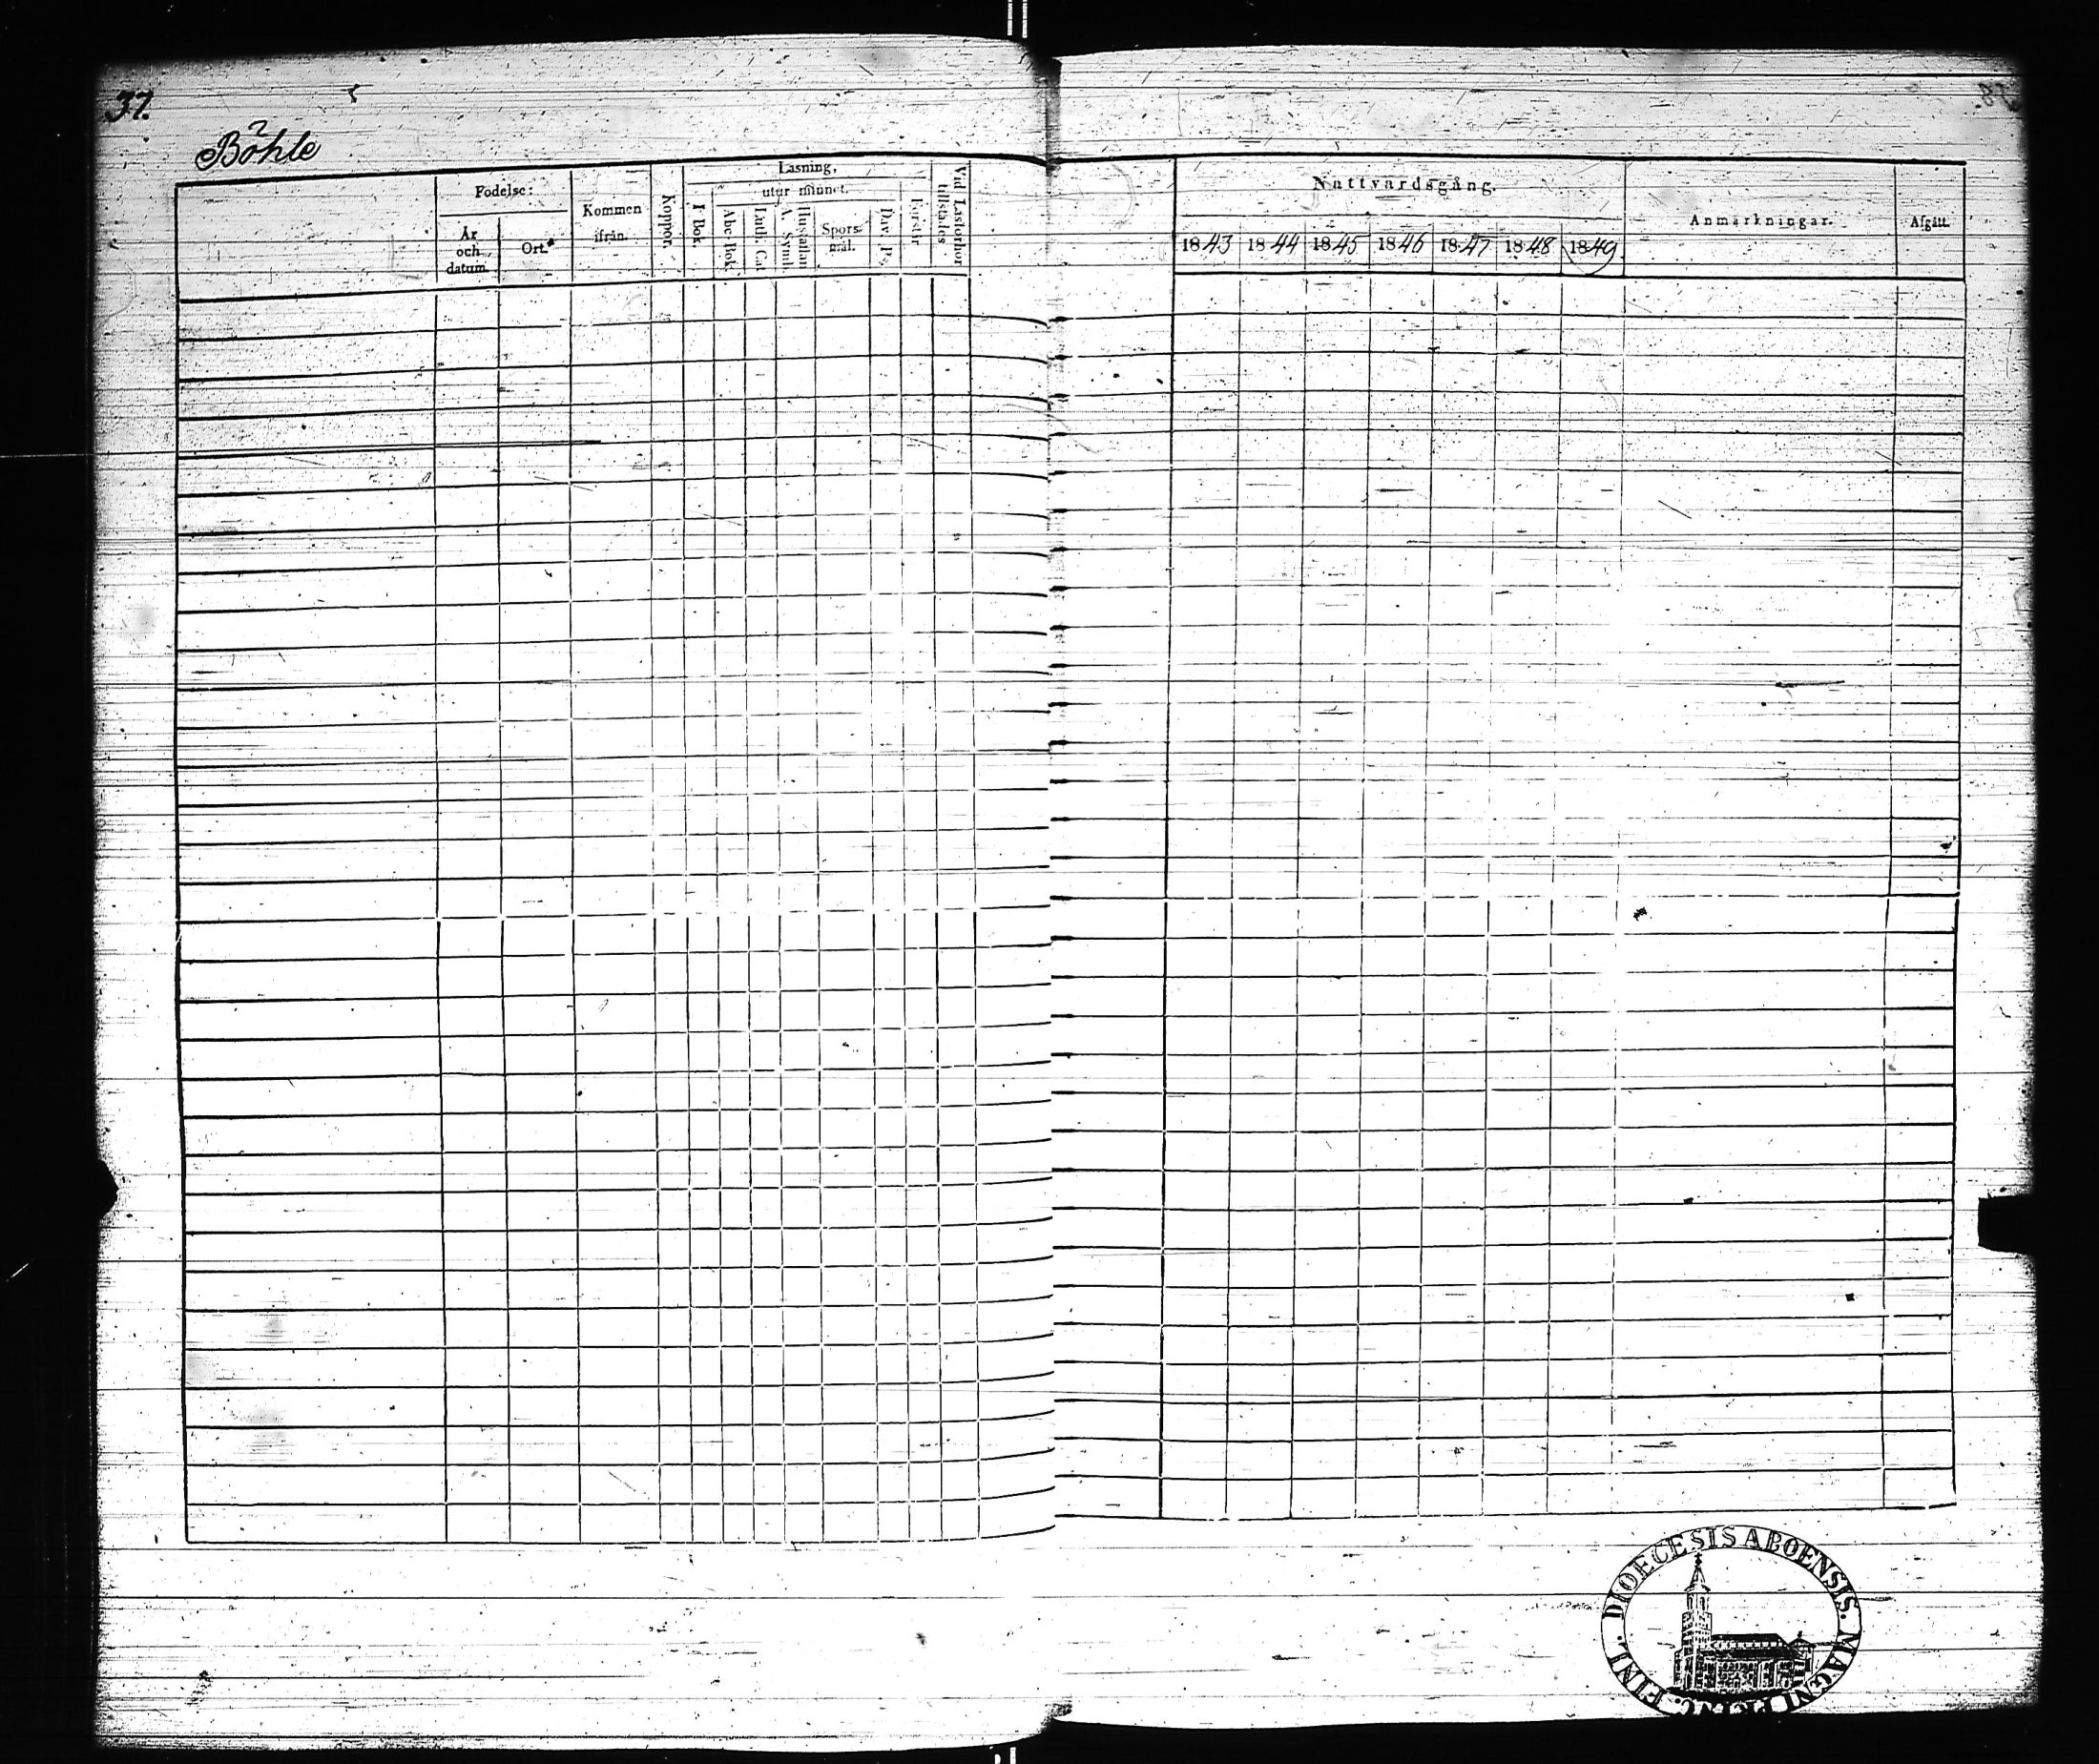 37.
Böhle
Födelse:
År och datum.
Ort.
Kommen ifrån.
Koppor.
Läsning,
utur minnet.
I Bok.
Abc Bok.
Luth. Cat
A. Symb.
Hustaflan
Spörsmål.
Dav. Ps.
Förstår
Vid Läsförhör tillstädes
Nattvardsgång.
1843 1844 1845 1846 1847 1848 1849
Anmärkningar.
Afgått.
DIOECESIS ABOENSIS. MAGNI PRINC. FINL.